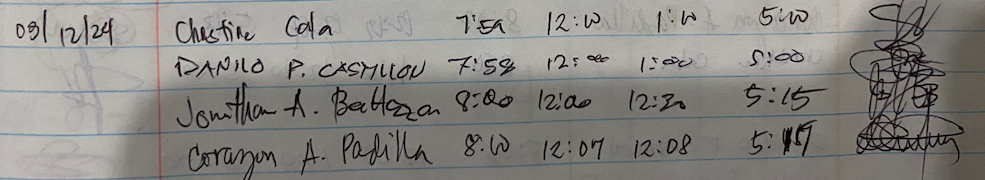 03/12/24 Christine Cala 7:59 12:00 1:00 5:00
DANILO P. CASTILLON 7:58 12:00 1:00 5:00
Jonathan A. 8:00 12:00 12:30 5:15
Corazon A. Padilla 8:00 12:07 12:08 5:17